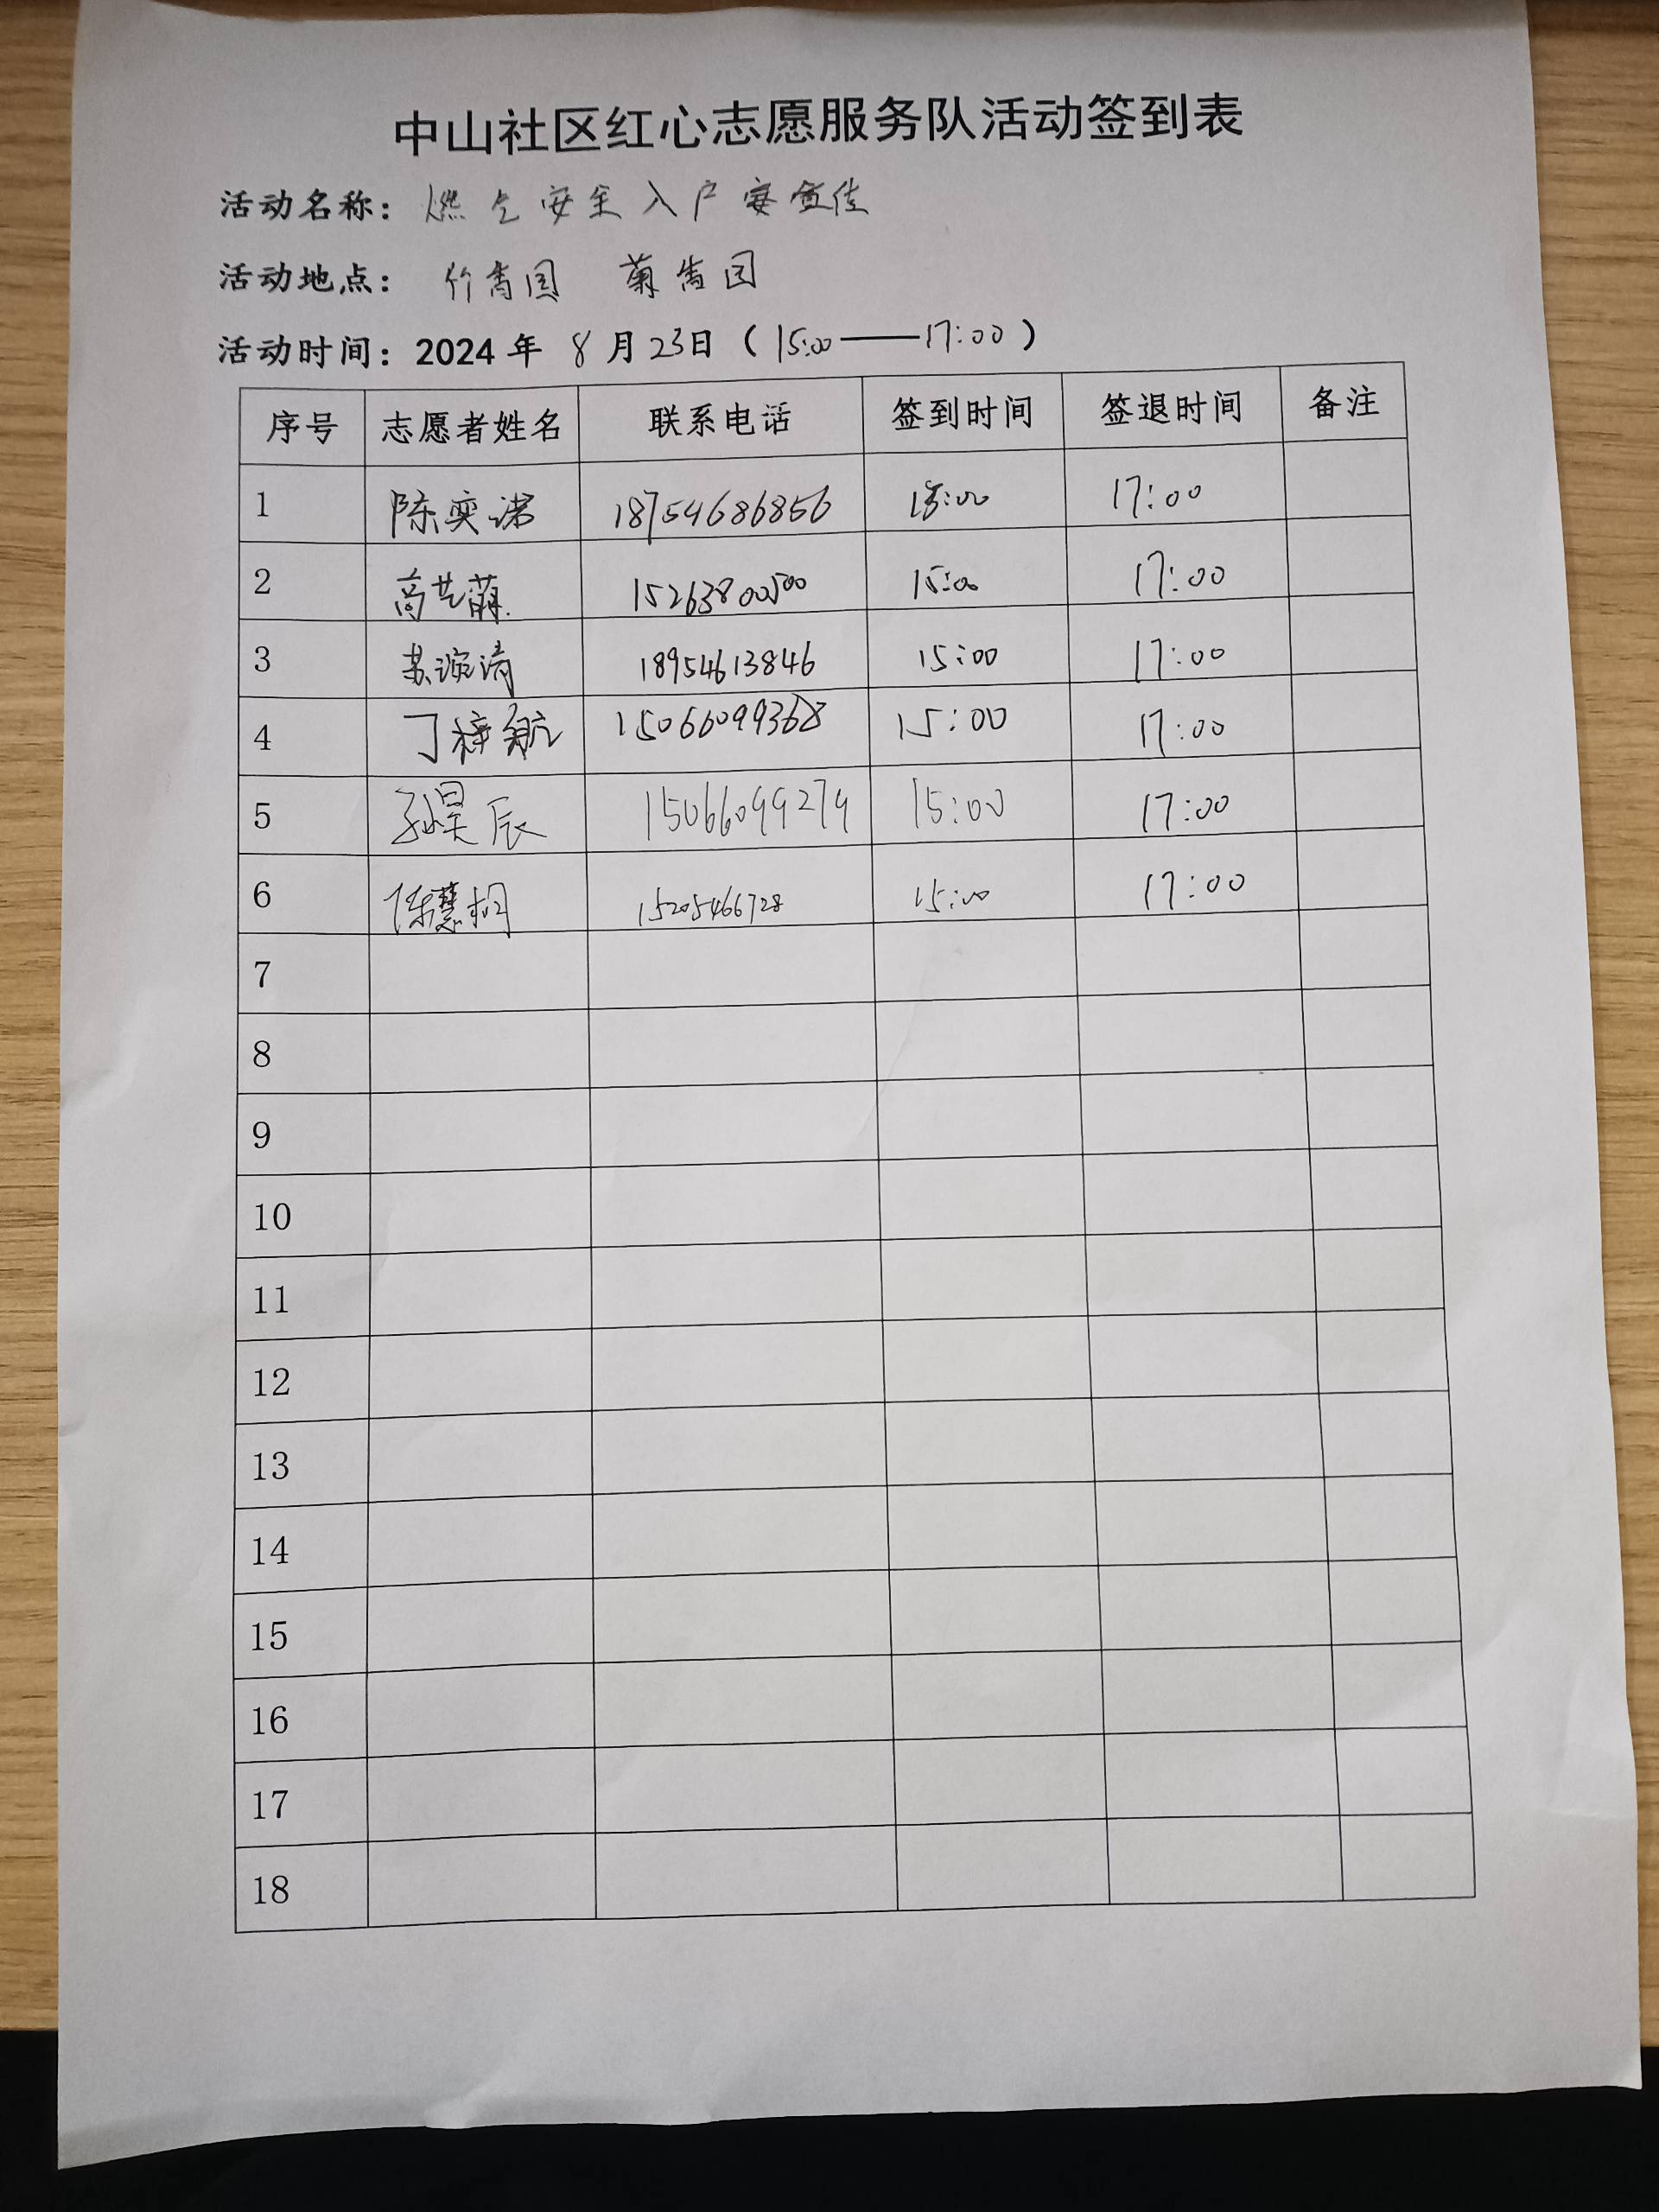 中山社区红心志愿服务队活动签到表
活动名称: 燃气安全入户宣传
活动地点: 竹香园 菊香园
活动时间: 2024 年 8 月 23日 ( 15:00——17:00 )
序号 志愿者姓名 联系电话 签到时间 签退时间 备注
1 陈奕诺 18754686856 15:00 17:00
2 高艺萌 15263800500 15:00 17:00
3 苏漩清 18954613846 15:00 17:00
4 丁梓航 15066099368 15:00 17:00
5 孙昊辰 15066099279 15:00 17:00
6 陈慧桐 15205466728 15:00 17:00
7
8
9
10
11
12
13
14
15
16
17
18